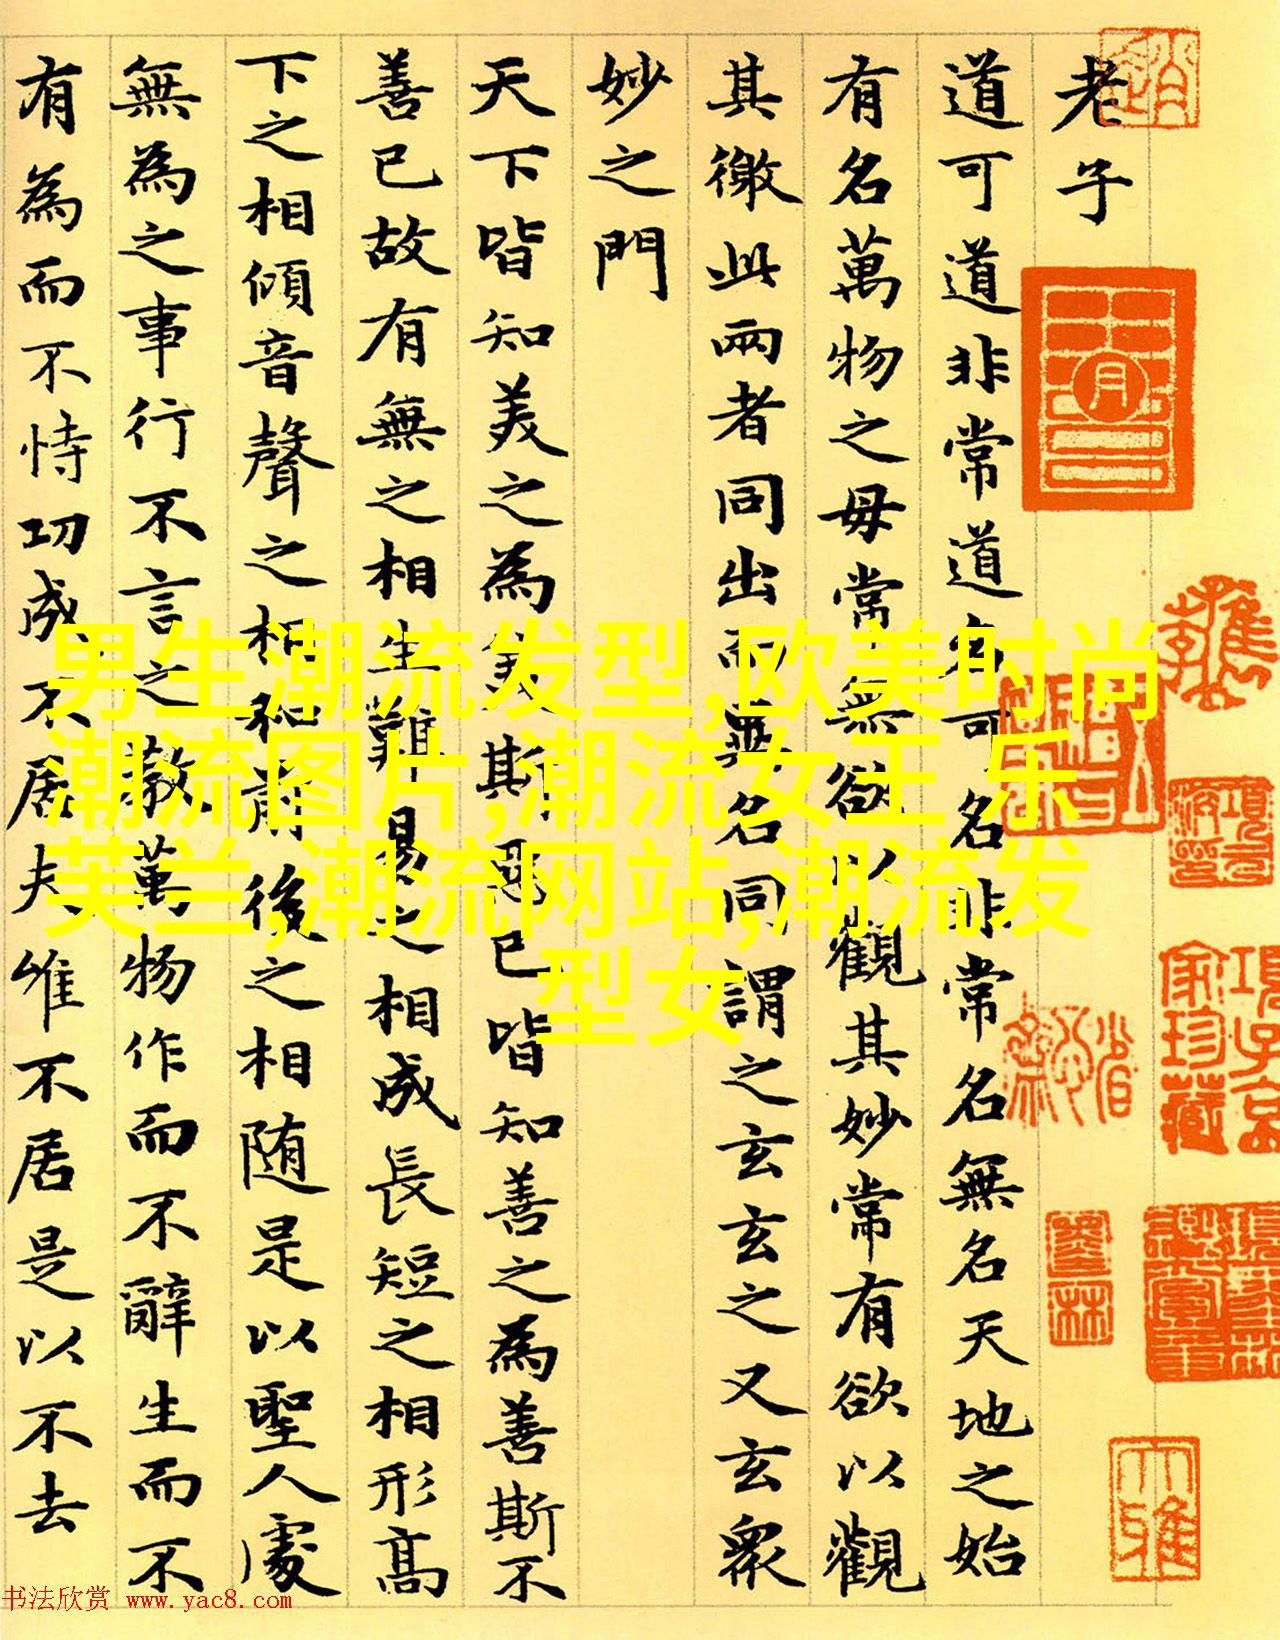 老子
道可道非常道名可名非常名無名天地之始
有名萬物之母常無欲以觀其妙常有欲以觀
其徼此兩者同出而異名同謂之玄玄之又玄眾
妙之門
天下皆知美之為美斯惡已皆知善之為善斯不
善已故有無之相生難易之相成長短之相形高
下之相傾音聲之相和前後之相随是以聖人處
無為之事行不言之教萬物作而不辭生而不
有為而不恃功成不居夫唯不居是以不去
男生潮流发型,欧美时尚
潮流图片,潮流女王 乐
芙兰,潮流网站,潮流发
型女
項子京
家珍藏
书法欣赏 www.yac8.com